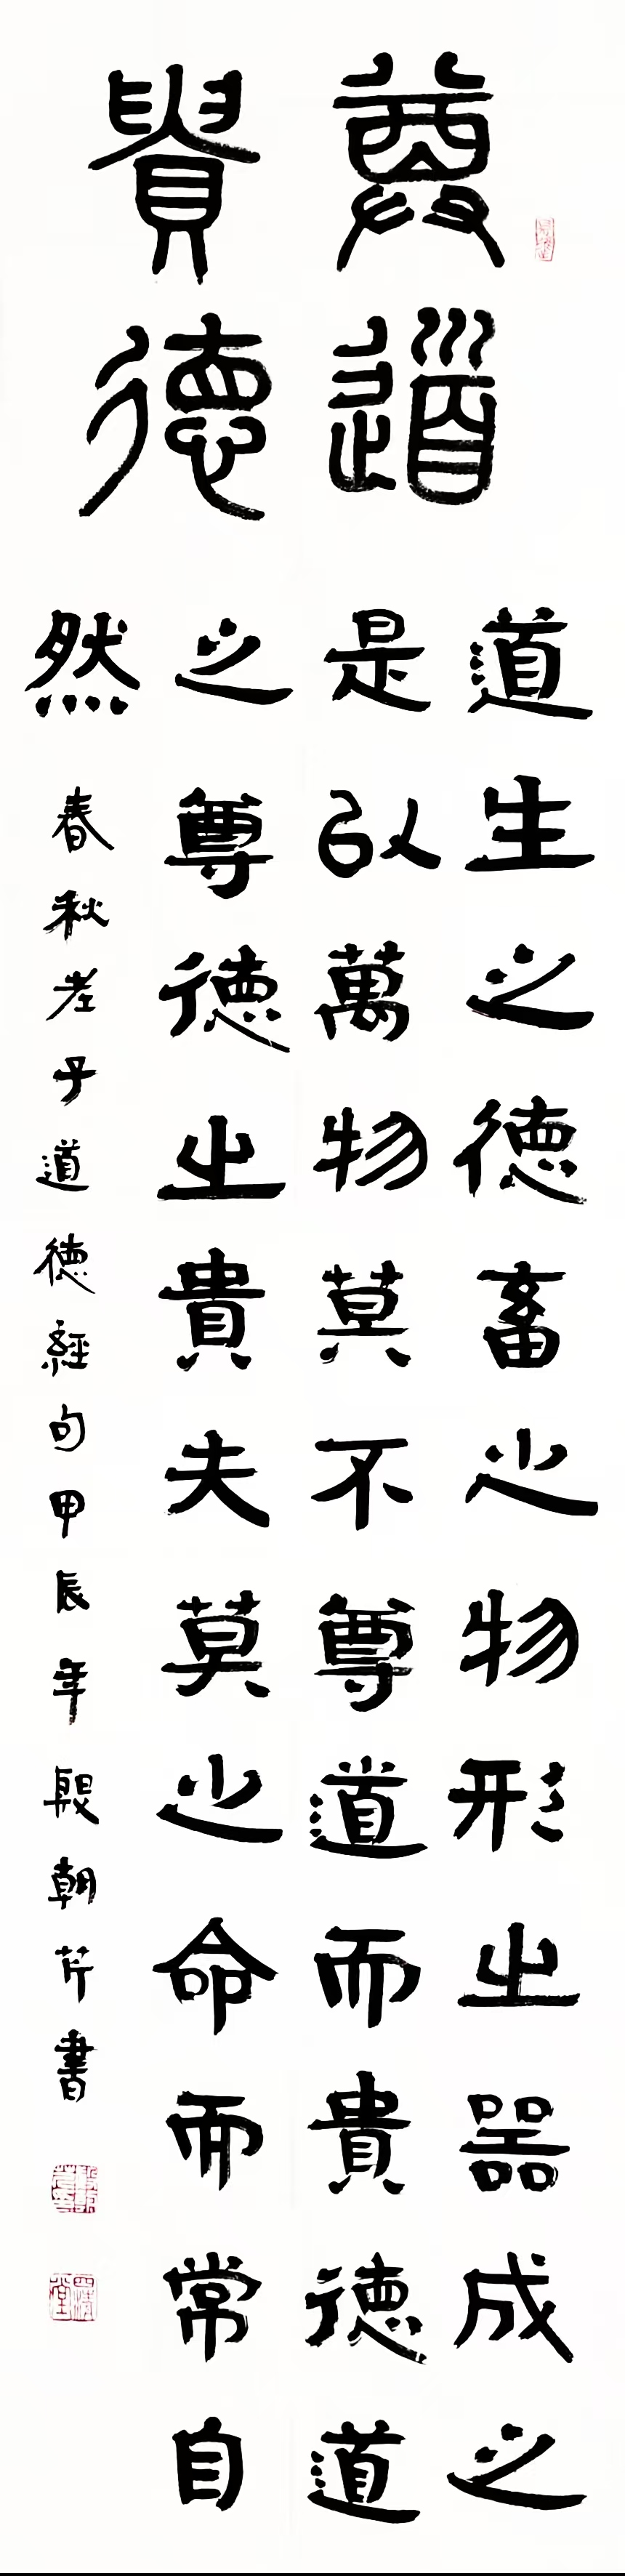 尊道
貴德
道生之德畜之物形之器成之
是以萬物莫不尊道而貴德道
之尊德之貴夫莫之命而常自
然
春秋老子道德經句甲辰年殷朝芹書